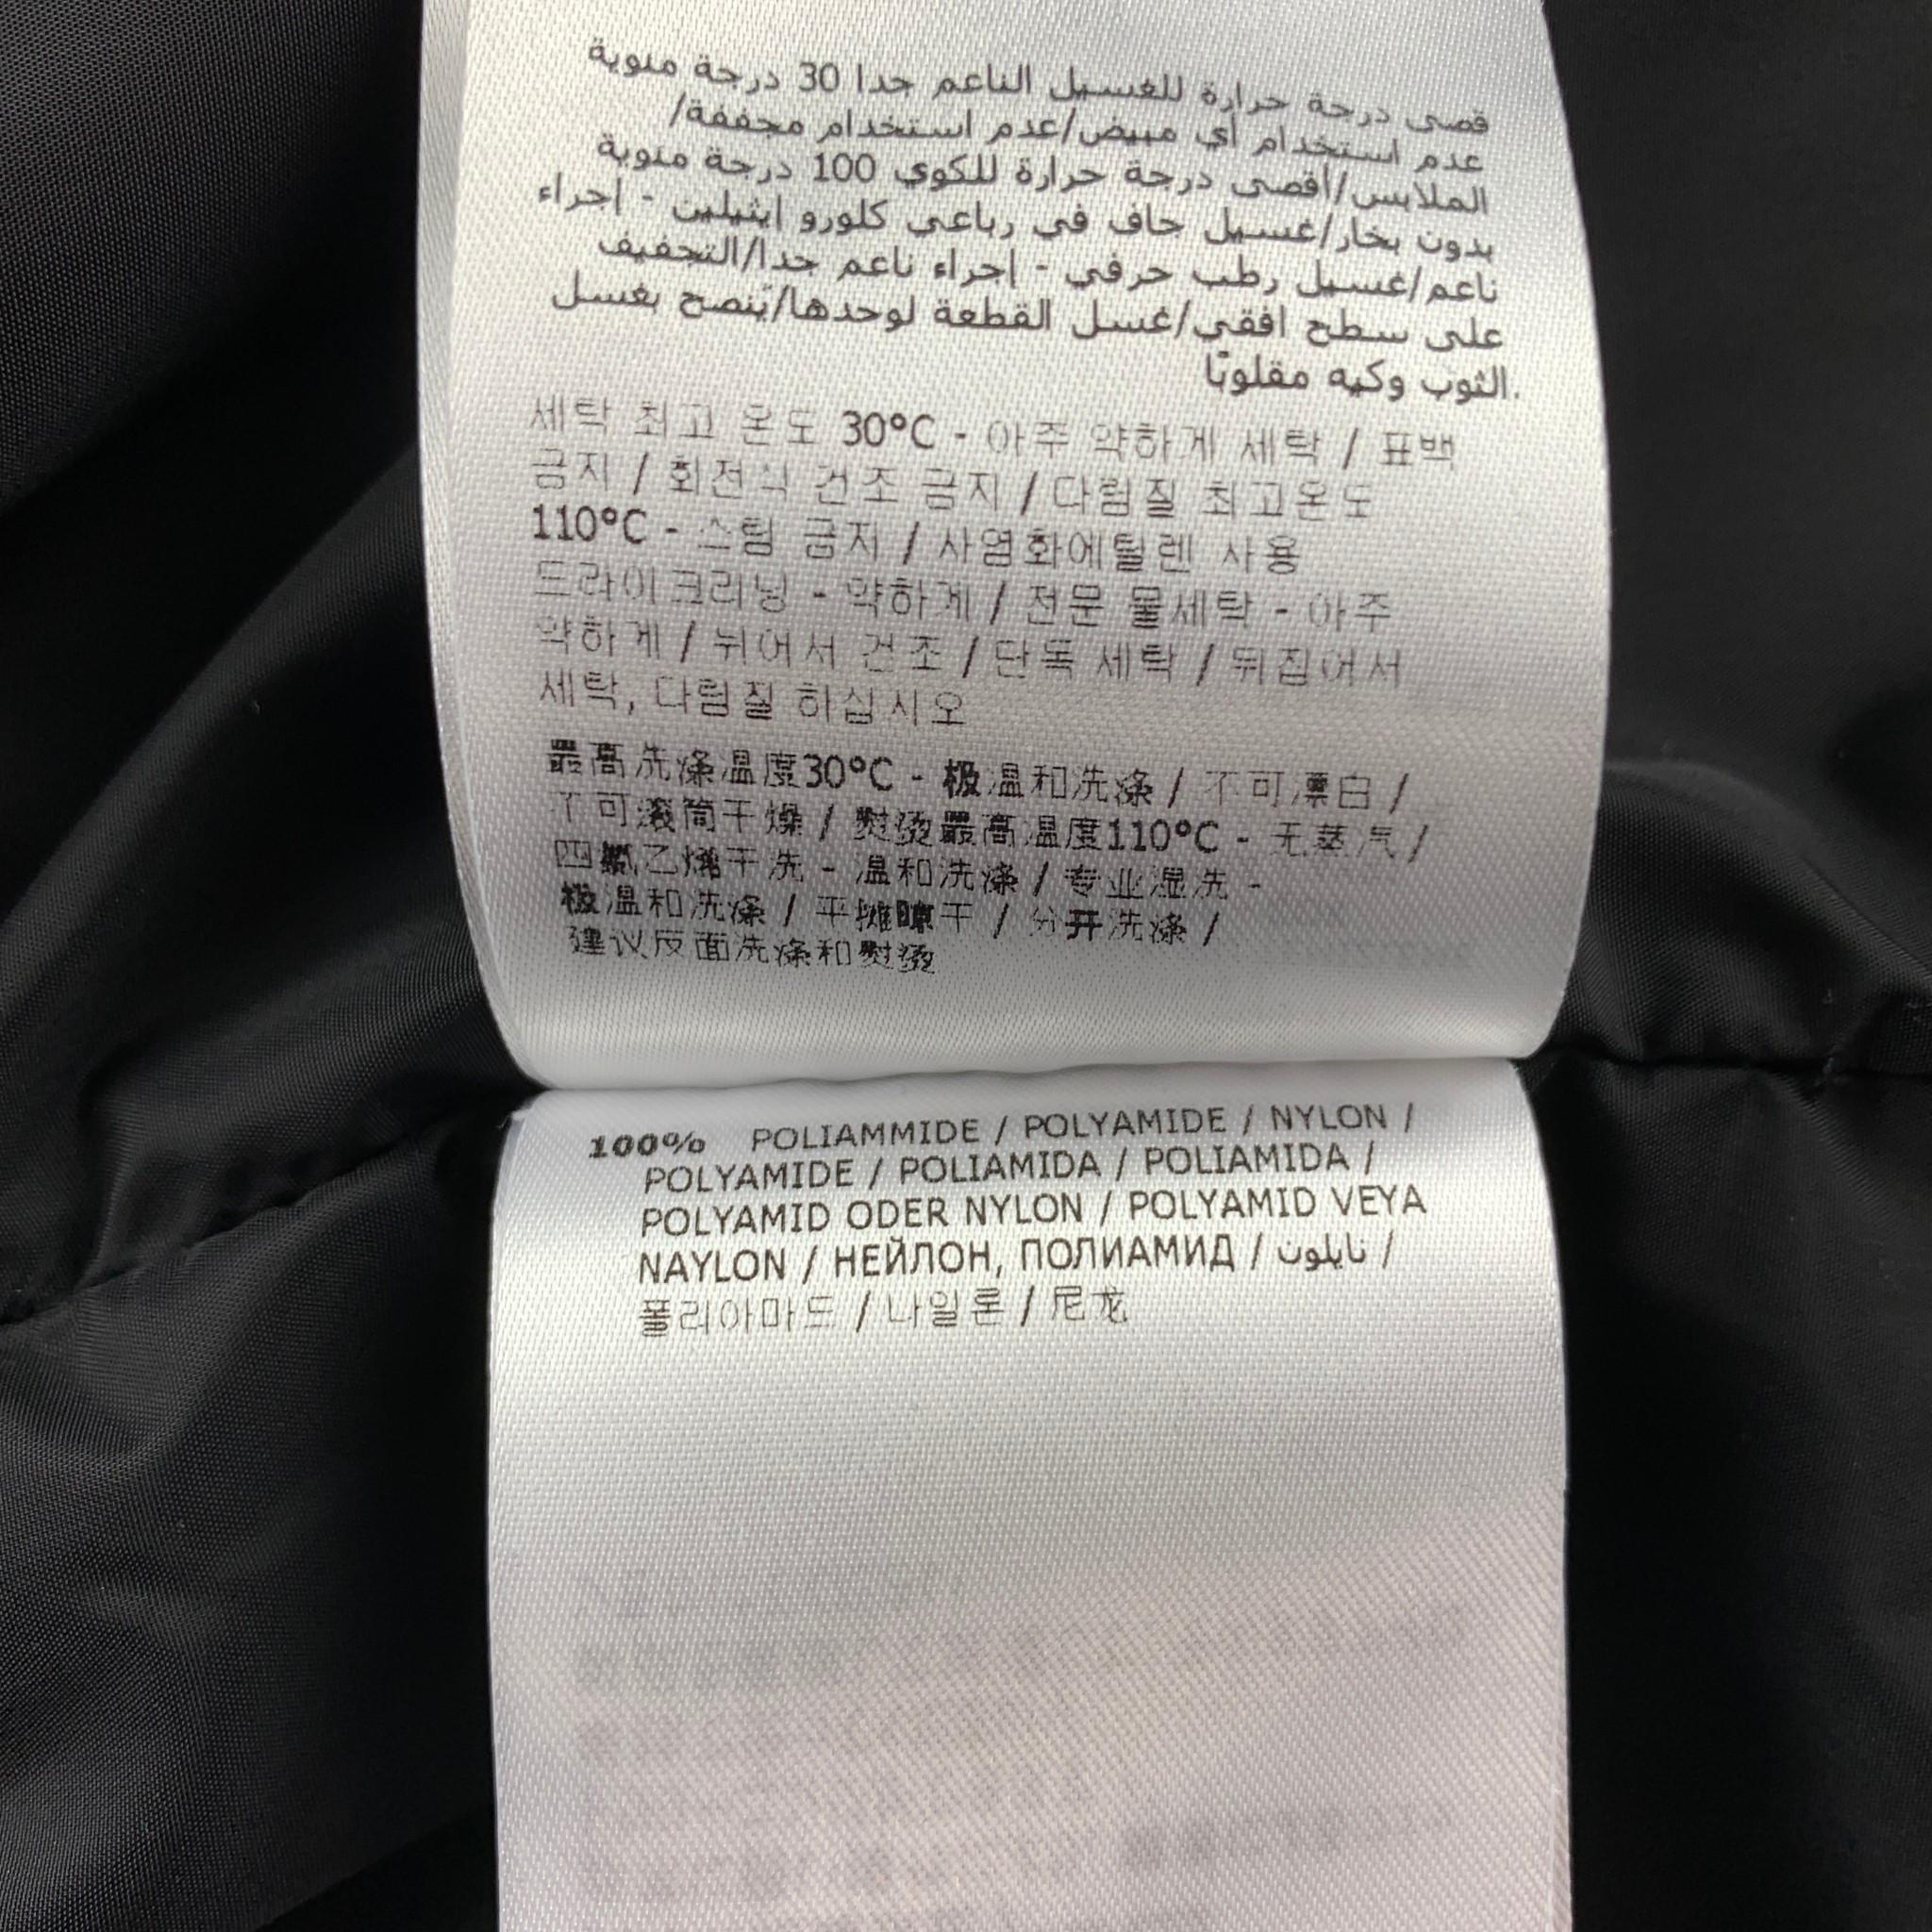 قصى درجة حرارة للغسيل الناعم جدا 30 درجة مئوية
عدم استخدام أي مبيض/عدم استخدام مجففة/
الملابس/أقصى درجة حرارة للكوي 100 درجة مئوية
بدون بخار/غسيل جاف في رباعي كلورو إيثيلين - إجراء
ناعم/غسيل رطب حرفي - إجراء ناعم جدا/التجفيف
على سطح افقي/غسل القطعة لوحدها/يُنصح بغسل
الثوب وكيه مقلوبًا.
세탁 최고 온도 30°C - 아주 약하게 세탁 / 표백
금지 / 회전식 건조 금지 / 다림질 최고온도
110°C - 스팀 금지 / 사염화에틸렌 사용
드라이크리닝 - 약하게 / 전문 물세탁 - 아주
약하게 / 뉘어서 건조 / 단독 세탁 / 뒤집어서
세탁, 다림질 하십시오
最高洗涤温度30°C - 极温和洗涤 / 不可漂白 /
不可滚筒干燥 / 熨烫最高温度110°C - 无蒸汽 /
四氯乙烯干洗 - 温和洗涤 / 专业湿洗 -
极温和洗涤 / 平摊晾干 / 分开洗涤 /
建议反面洗涤和熨烫
100% POLIAMMIDE / POLYAMIDE / NYLON /
POLYAMIDE / POLIAMIDA / POLIAMIDA /
POLYAMID ODER NYLON / POLYAMID VEYA
NAYLON / НЕЙЛОН, ПОЛИАМИД / نايلون /
폴리아마드 / 나일론 / 尼龙